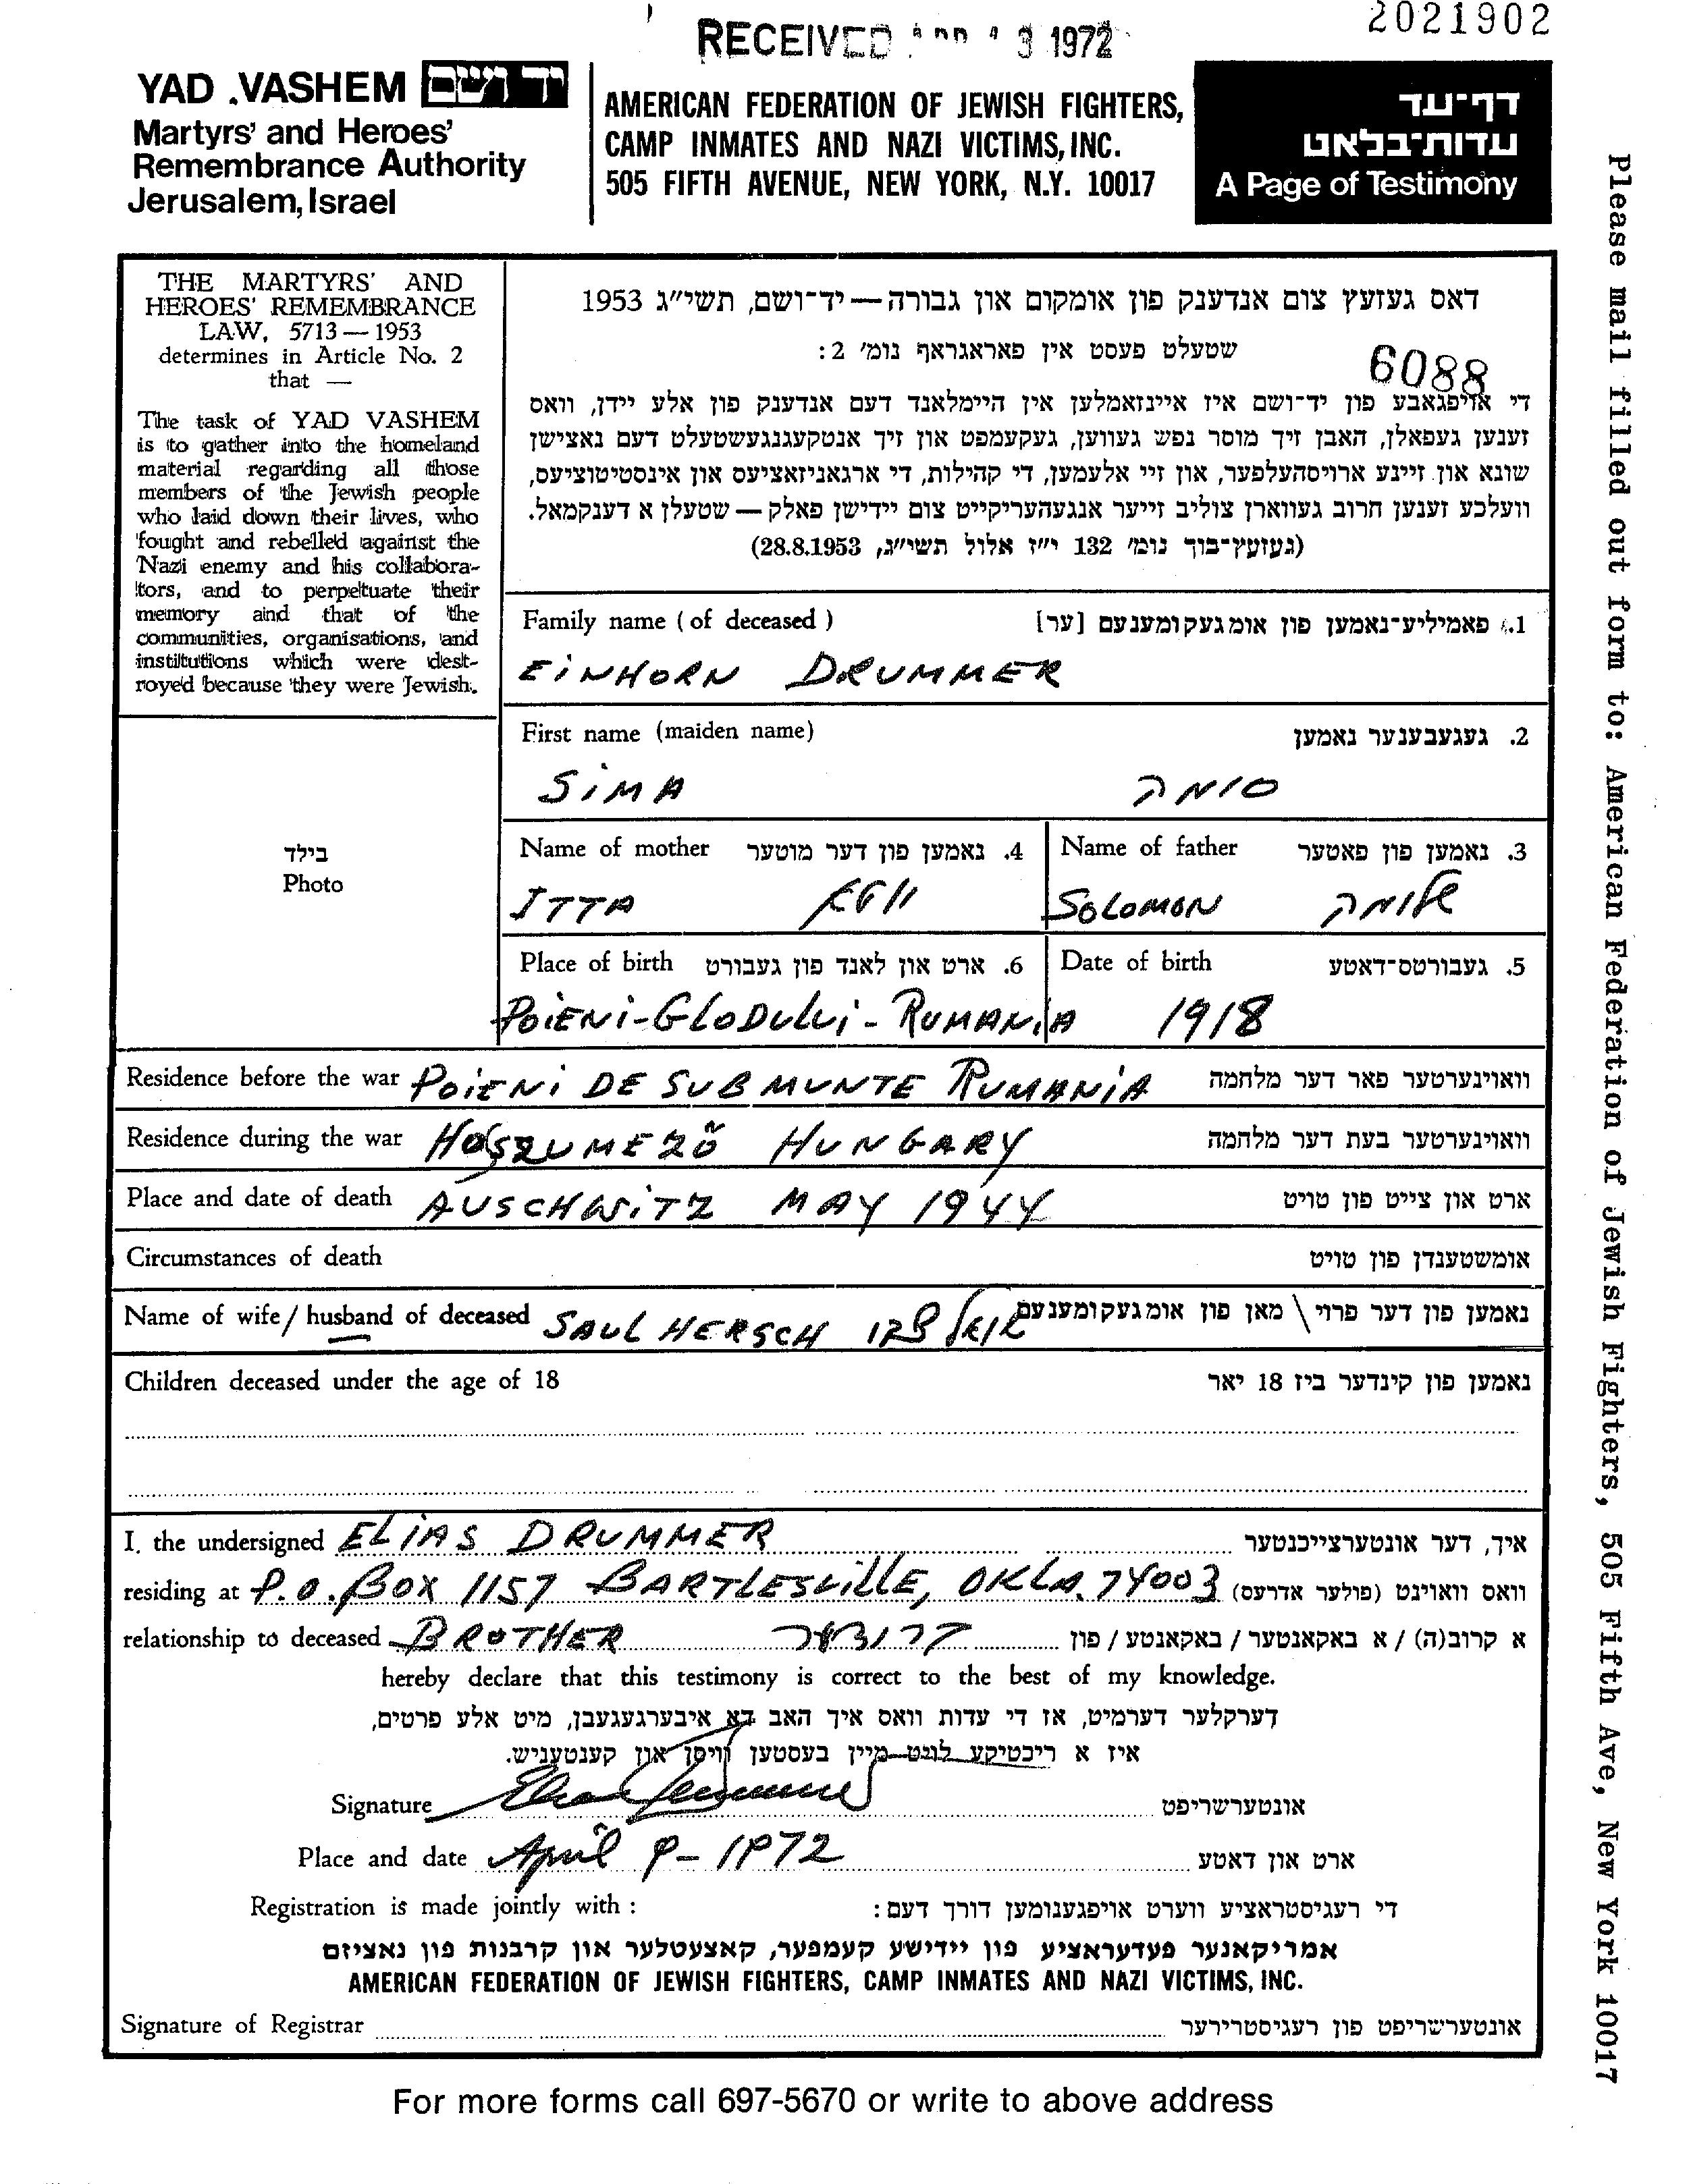 2021902
RECEIVED 1972
YAD VASHEM יד ושם
Martyrs' and Heroes'
Remembrance Authority
Jerusalem, Israel
AMERICAN FEDERATION OF JEWISH FIGHTERS,
CAMP INMATES AND NAZI VICTIMS, INC.
505 FIFTH AVENUE, NEW YORK, N.Y. 10017
דף-עד
עדות-בלאט
A Page of Testimony
Please mail filled out form to: American Federation of Jewish Fighters, 505 Fifth Ave, New York 10017
THE MARTYRS' AND
HEROES' REMEMBRANCE
LAW, 5713 — 1953
determines in Article No. 2
that —
The task of YAD VASHEM
is to gather into the homeland
material regarding all those
members of the Jewish people
who laid down their lives, who
fought and rebelled against the
Nazi enemy and his collabora-
tors, and to perpetuate their
memory and that of the
communities, organisations, and
institutions which were dest-
royed because they were Jewish.
דאס געזעץ צום אנדענק פון אומקום און גבורה — יד-ושם, תשי"ג 1953
שטעלט פעסט אין פאראגראף נומ' 2:
6088
די אויפגאבע פון יד-ושם איז איינזאמלען אין היימלאנד דעם אנדענק פון אלע יידן, וואס
זענען געפאלן, האבן זיך מוסר נפש געווען, געקעמפט און זיך אנטקעגנגעשטעלט דעם נאצישן
שונא און זיינע ארויסהעלפער, און זיי אלעמען, די קהילות, די ארגאניזאציעס און אינסטיטוציעס,
וועלכע זענען חרוב געווארן צוליב זייער אנגעהעריקייט צום יידישן פאלק — שטעלן א דענקמאל.
(געזעץ-בוך נומ' 132 י"ז אלול תשי"ג, 28.8.1953)
בילד
Photo
Family name (of deceased) 1. פאמיליע-נאמען פון אומגעקומענעם [ער]
EINHORN DRUMMER
First name (maiden name) 2. געגעבענער נאמען
SIMA סימה
Name of mother 4. נאמען פון דער מוטער
ITTA
Name of father 3. נאמען פון פאטער
SOLOMON שלומה
Place of birth 6. ארט און לאנד פון געבורט
POIENI-GLODULUI - RUMANIA
Date of birth 5. געבורטס-דאטע
1918
Residence before the war POIENI DE SUB MUNTE RUMANIA וואוינערטער פאר דער מלחמה
Residence during the war HOSZUMEZŐ HUNGARY וואוינערטער בעת דער מלחמה
Place and date of death AUSCHWITZ MAY 1944 ארט און צייט פון טויט
Circumstances of death אומשטענדן פון טויט
Name of wife / husband of deceased SAUL HERSCH שאול הרש נאמען פון דער פרוי \ מאן פון אומגעקומענעם
Children deceased under the age of 18 נאמען פון קינדער ביז 18 יאר
I, the undersigned ELIAS DRUMMER איך, דער אונטערצייכנטער
residing at P.O. BOX 1157 BARTLESVILLE, OKLA. 74003 וואס וואוינט (פולער אדרעס)
relationship to deceased BROTHER ברודער א קרוב(ה) / א באקאנטער / באקאנטע / פון
hereby declare that this testimony is correct to the best of my knowledge.
דערקלער דערמיט, אז די עדות וואס איך האב דא איבערגעגעבן, מיט אלע פרטים,
איז א ריכטיקע לויט מיין בעסטען וויסן און קענטעניש.
Signature Elias Drummer אונטערשריפט
Place and date April 9 - 1972 ארט און דאטע
Registration is made jointly with : די רעגיסטראציע ווערט אויפגענומען דורך דעם :
אמריקאנער פעדעראציע פון יידישע קעמפער, קאצעטלער און קרבנות פון נאציזם
AMERICAN FEDERATION OF JEWISH FIGHTERS, CAMP INMATES AND NAZI VICTIMS, INC.
Signature of Registrar אונטערשריפט פון רעגיסטרירער
For more forms call 697-5670 or write to above address